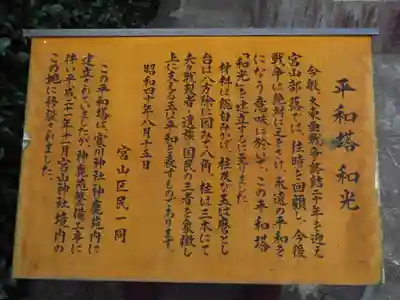 平和塔 和光
今般、大東亜戦争終結二十年を迎え
宮山部落では、往時を回顧し、今後
戦争は絶対にさけて、永遠の平和を
になう意味に於いて、この平和塔
「和光」を建立するに至りました
材料は総白みかげ、柱及び玉は磨とし
台は八方除に因みて八角、柱は三本にて
夫々戦没者、遺族、国民の三者を象徴し
上に支える玉は平和を表すものであります。
昭和四十年八月十五日
宮山区民一同
この平和塔は、寒川神社神鹿苑内に
建立されていましたが、神鹿苑整備工事に
伴い平成二十一年十一月宮山神社境内の
この地に移設されました。